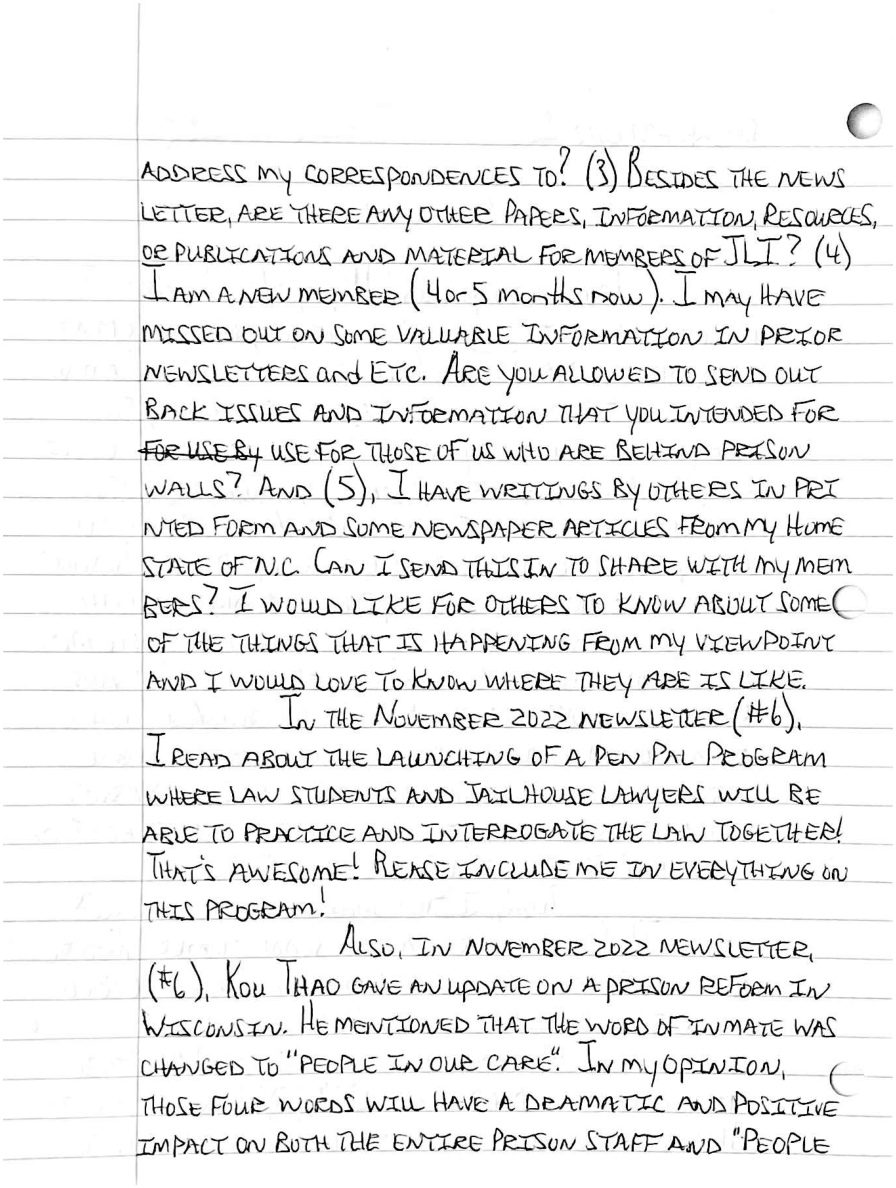 ADDRESS my CORRESPONDENCES TO? (3) BESIDES THE NEWS
LETTER, ARE THERE ANY OTHER PAPERS, INFORMATION, RESOURCES,
OR PUBLICATIONS AND MATERIAL FOR MEMBERS OF JLI? (4)
I AM A NEW MEMBER (4 or 5 months now). I MAY HAVE
MISSED OUT ON SOME VALUABLE INFORMATION IN PRIOR
NEWSLETTERS and ETC. ARE YOU ALLOWED TO SEND OUT
BACK ISSUES AND INFORMATION THAT YOU INTENDED FOR
FOR USE By USE FOR THOSE OF US WHO ARE BEHIND PRISON
WALLS? AND (5), I HAVE WRITINGS BY OTHERS IN PRI
NTED FORM AND SOME NEWSPAPER ARTICLES FROM MY HOME
STATE OF N.C. CAN I SEND THIS IN TO SHARE WITH MY MEM
BERS? I WOULD LIKE FOR OTHERS TO KNOW ABOUT SOME
OF THE THINGS THAT IS HAPPENING FROM MY VIEWPOINT
AND I WOULD LOVE TO KNOW WHERE THEY ARE IS LIKE.
IN THE NOVEMBER 2022 NEWSLETTER (#6),
I READ ABOUT THE LAUNCHING OF A PEN PAL PROGRAM
WHERE LAW STUDENTS AND JAILHOUSE LAWYERS WILL BE
ABLE TO PRACTICE AND INTERROGATE THE LAW TOGETHER!
THAT'S AWESOME! PLEASE INCLUDE ME IN EVERYTHING ON
THIS PROGRAM!
ALSO, IN NOVEMBER 2022 NEWSLETTER,
(#6), KOU THAO GAVE AN UPDATE ON A PRISON REFORM IN
WISCONSIN. HE MENTIONED THAT THE WORD OF INMATE WAS
CHANGED TO "PEOPLE IN OUR CARE". IN MY OPINION,
THOSE FOUR WORDS WILL HAVE A DRAMATIC AND POSITIVE
IMPACT ON BOTH THE ENTIRE PRISON STAFF AND "PEOPLE